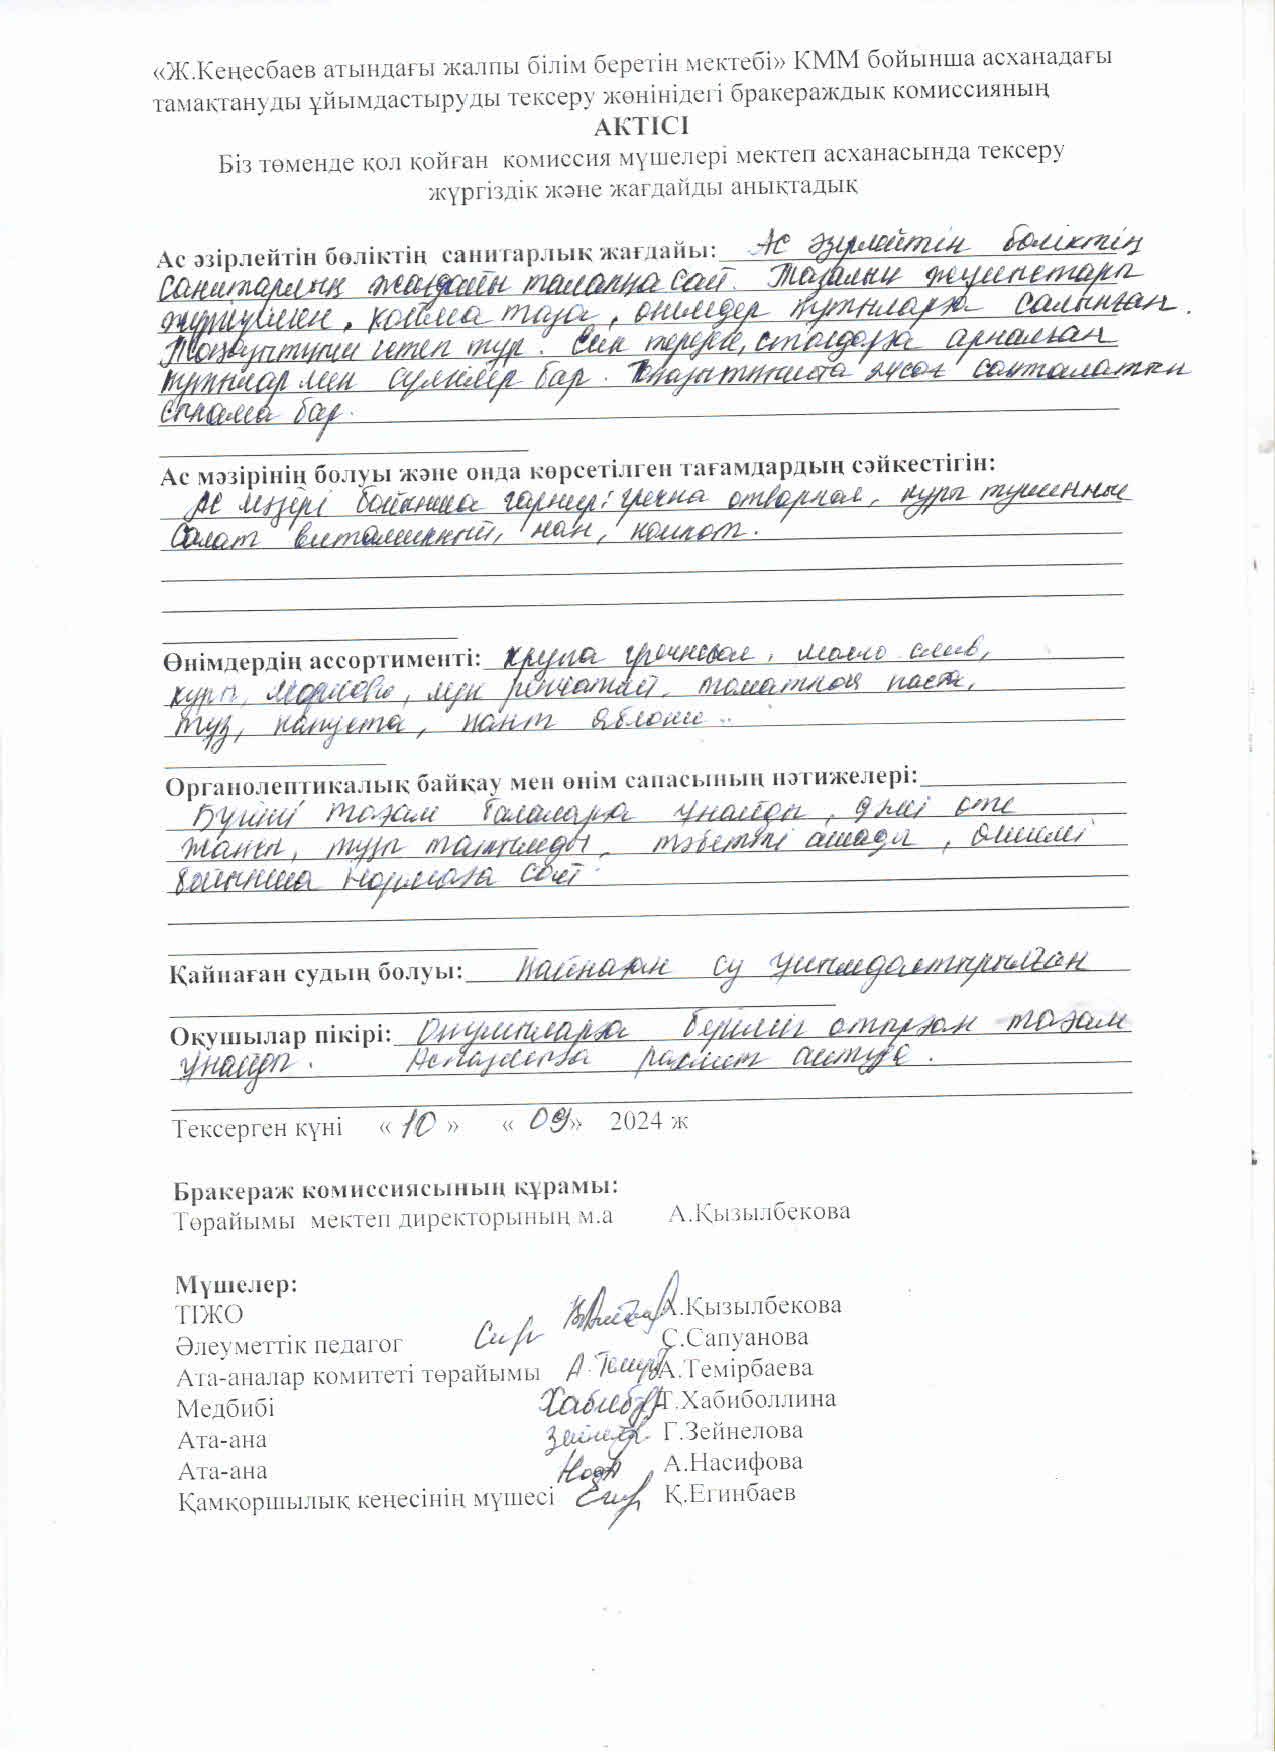 «Ж.Кеңесбаев атындағы жалпы білім беретін мектебі» КММ бойынша асханадағы
тамақтануды ұйымдастыруды тексеру жөнінідегі бракераждық комиссияның
АКТІСІ
Біз төменде қол қойған комиссия мүшелері мектеп асханасында тексеру
жүргіздік және жағдайды анықтадық
Ас әзірлейтін бөліктің санитарлық жағдайы: Ас әзірлейтін бөліктің
санитарлық жағдайы талапқа сай. Тазалық жұмыстары
жүргізілген, қойма таза, өнімдер құтыларға салынған.
тұр. терезе, столдарға арналған
мен сүлгілер бар. сақталатын
сынама бар.
Ас мәзірінің болуы және онда көрсетілген тағамдардың сәйкестігін:
Ас мәзері бойынша гарнир: гречка отварная, куры тушенные
Салат витаминный, нан, компот.
Өнімдердің ассортименті: крупа гречневая, масло слив,
куры, морковь, лук репчатый, томатная паста,
тұз, капуста, кант яблоки
Органолептикалық байқау мен өнім сапасының нәтижелері:
Бүгінгі тағам балаларға ұнайды, дәмі өте
жақсы, тұзы татымды, тәбетті ашады, өлшемі
бойынша нормаға сай
Қайнаған судың болуы: Қайнаған су ұйымдастырылған
Оқушылар пікірі: Оқушыларға беріліп отырған тағам
ұнайды. Аспазшыға рахмет айтуда.
Тексерген күні « 10 » « 09» 2024 ж
Бракераж комиссиясының құрамы:
Төрайымы мектеп директорының м.а А.Қызылбекова
Мүшелер:
ТІЖО А.Қызылбекова
Әлеуметтік педагог С.Сапуанова
Ата-аналар комитеті төрайымы А.Темірбаева
Медбибі Т.Хабиболлина
Ата-ана Г.Зейнелова
Ата-ана А.Насифова
Қамқоршылық кеңесінің мүшесі Қ.Егинбаев